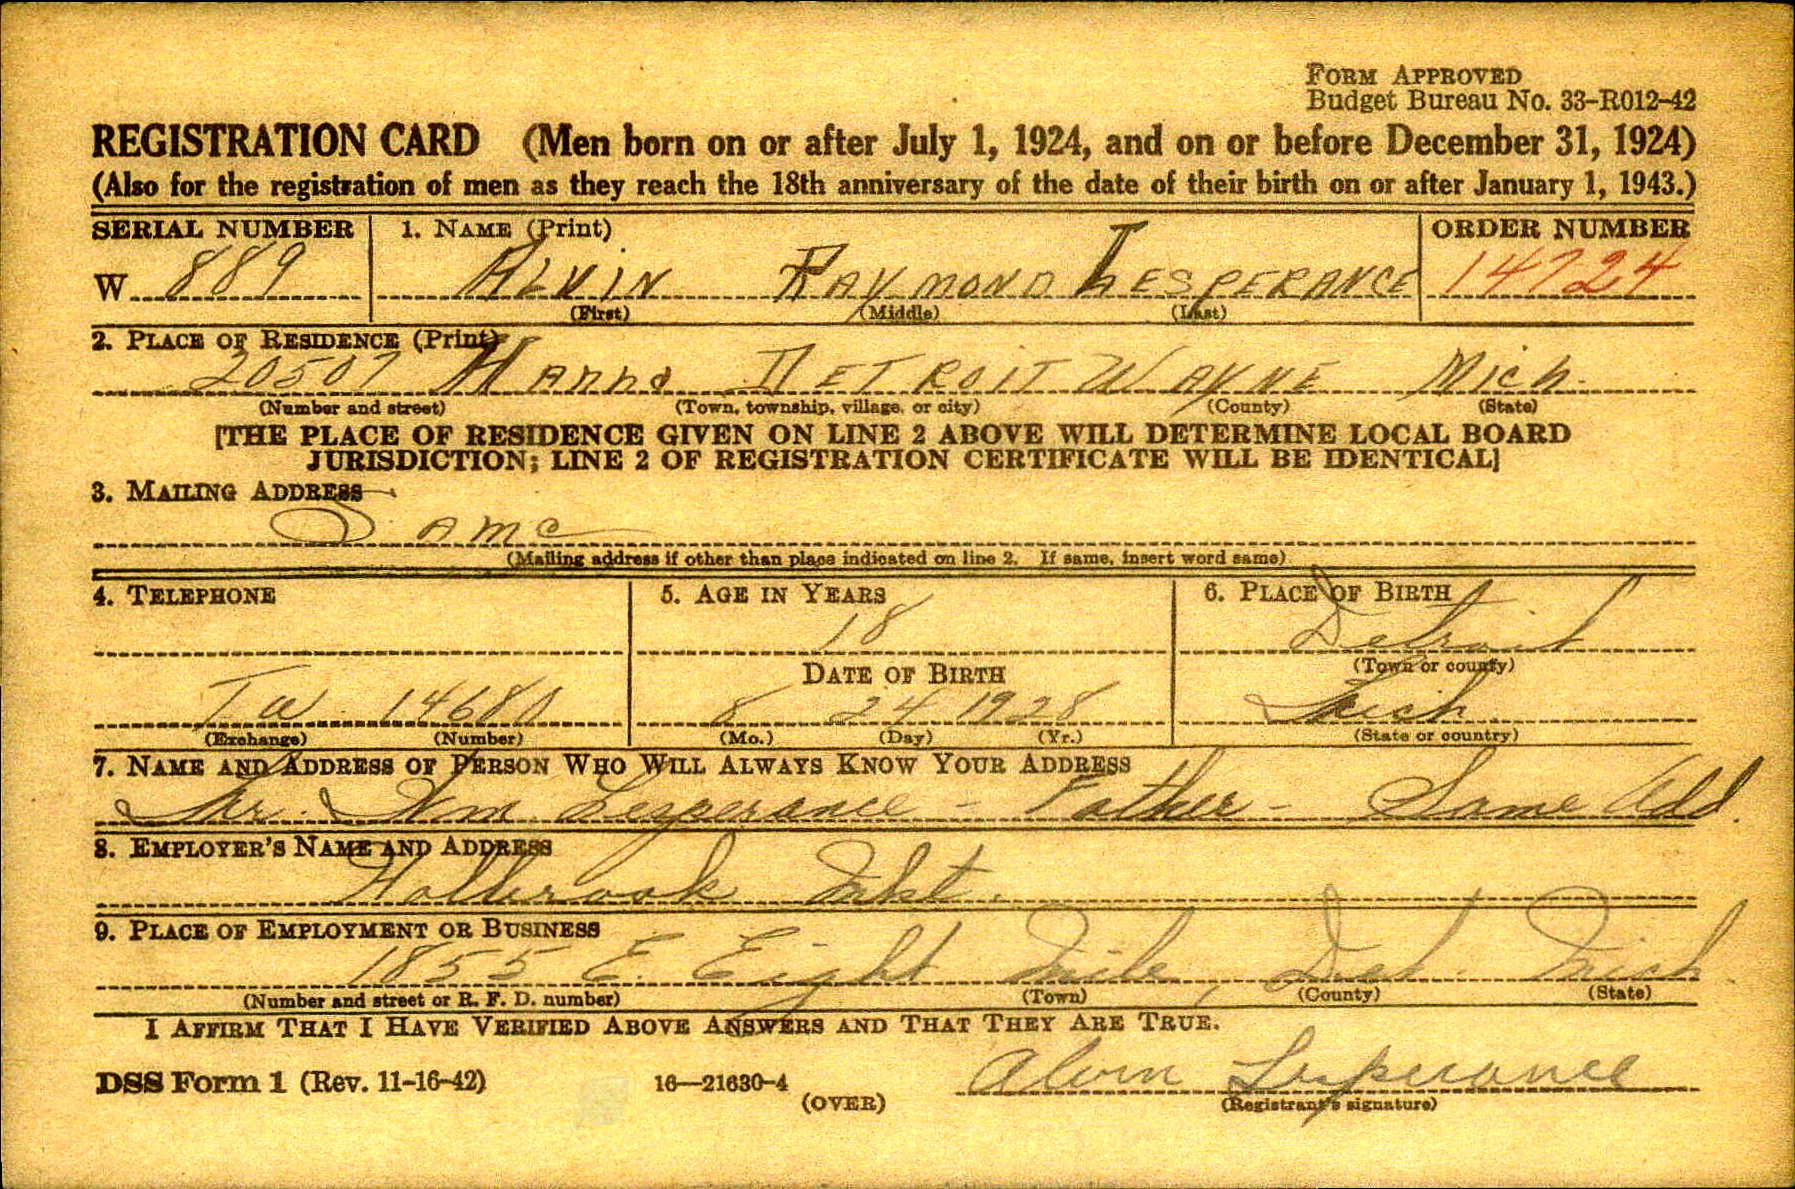 FORM APPROVED
Budget Bureau No. 33-R012-42
REGISTRATION CARD (Men born on or after July 1, 1924, and on or before December 31, 1924)
(Also for the registration of men as they reach the 18th anniversary of the date of their birth on or after January 1, 1943.)
SERIAL NUMBER 1. NAME (Print) ORDER NUMBER
W 889 ALVIN RAYMOND LESPERANCE 14724
(First) (Middle) (Last)
2. PLACE OF RESIDENCE (Print)
20507 Hanna DETROIT WAYNE Mich.
(Number and street) (Town, township, village, or city) (County) (State)
[THE PLACE OF RESIDENCE GIVEN ON LINE 2 ABOVE WILL DETERMINE LOCAL BOARD
JURISDICTION; LINE 2 OF REGISTRATION CERTIFICATE WILL BE IDENTICAL]
3. MAILING ADDRESS
Same
(Mailing address if other than place indicated on line 2. If same, insert word same)
4. TELEPHONE 5. AGE IN YEARS 6. PLACE OF BIRTH
18 Detroit
DATE OF BIRTH (Town or county)
Tw 14680 8 24 1928 Mich.
(Exchange) (Number) (Mo.) (Day) (Yr.) (State or country)
7. NAME AND ADDRESS OF PERSON WHO WILL ALWAYS KNOW YOUR ADDRESS
Mr. Wm Lesperance - Father - Same Add.
8. EMPLOYER'S NAME AND ADDRESS
Holbrook Mkt.
9. PLACE OF EMPLOYMENT OR BUSINESS
1855 E. Eight Mile, Det. Mich
(Number and street or R. F. D. number) (Town) (County) (State)
I AFFIRM THAT I HAVE VERIFIED ABOVE ANSWERS AND THAT THEY ARE TRUE.
Alvin Lesperance
DSS Form 1 (Rev. 11-16-42) 16—21630-4 (OVER) (Registrant's signature)